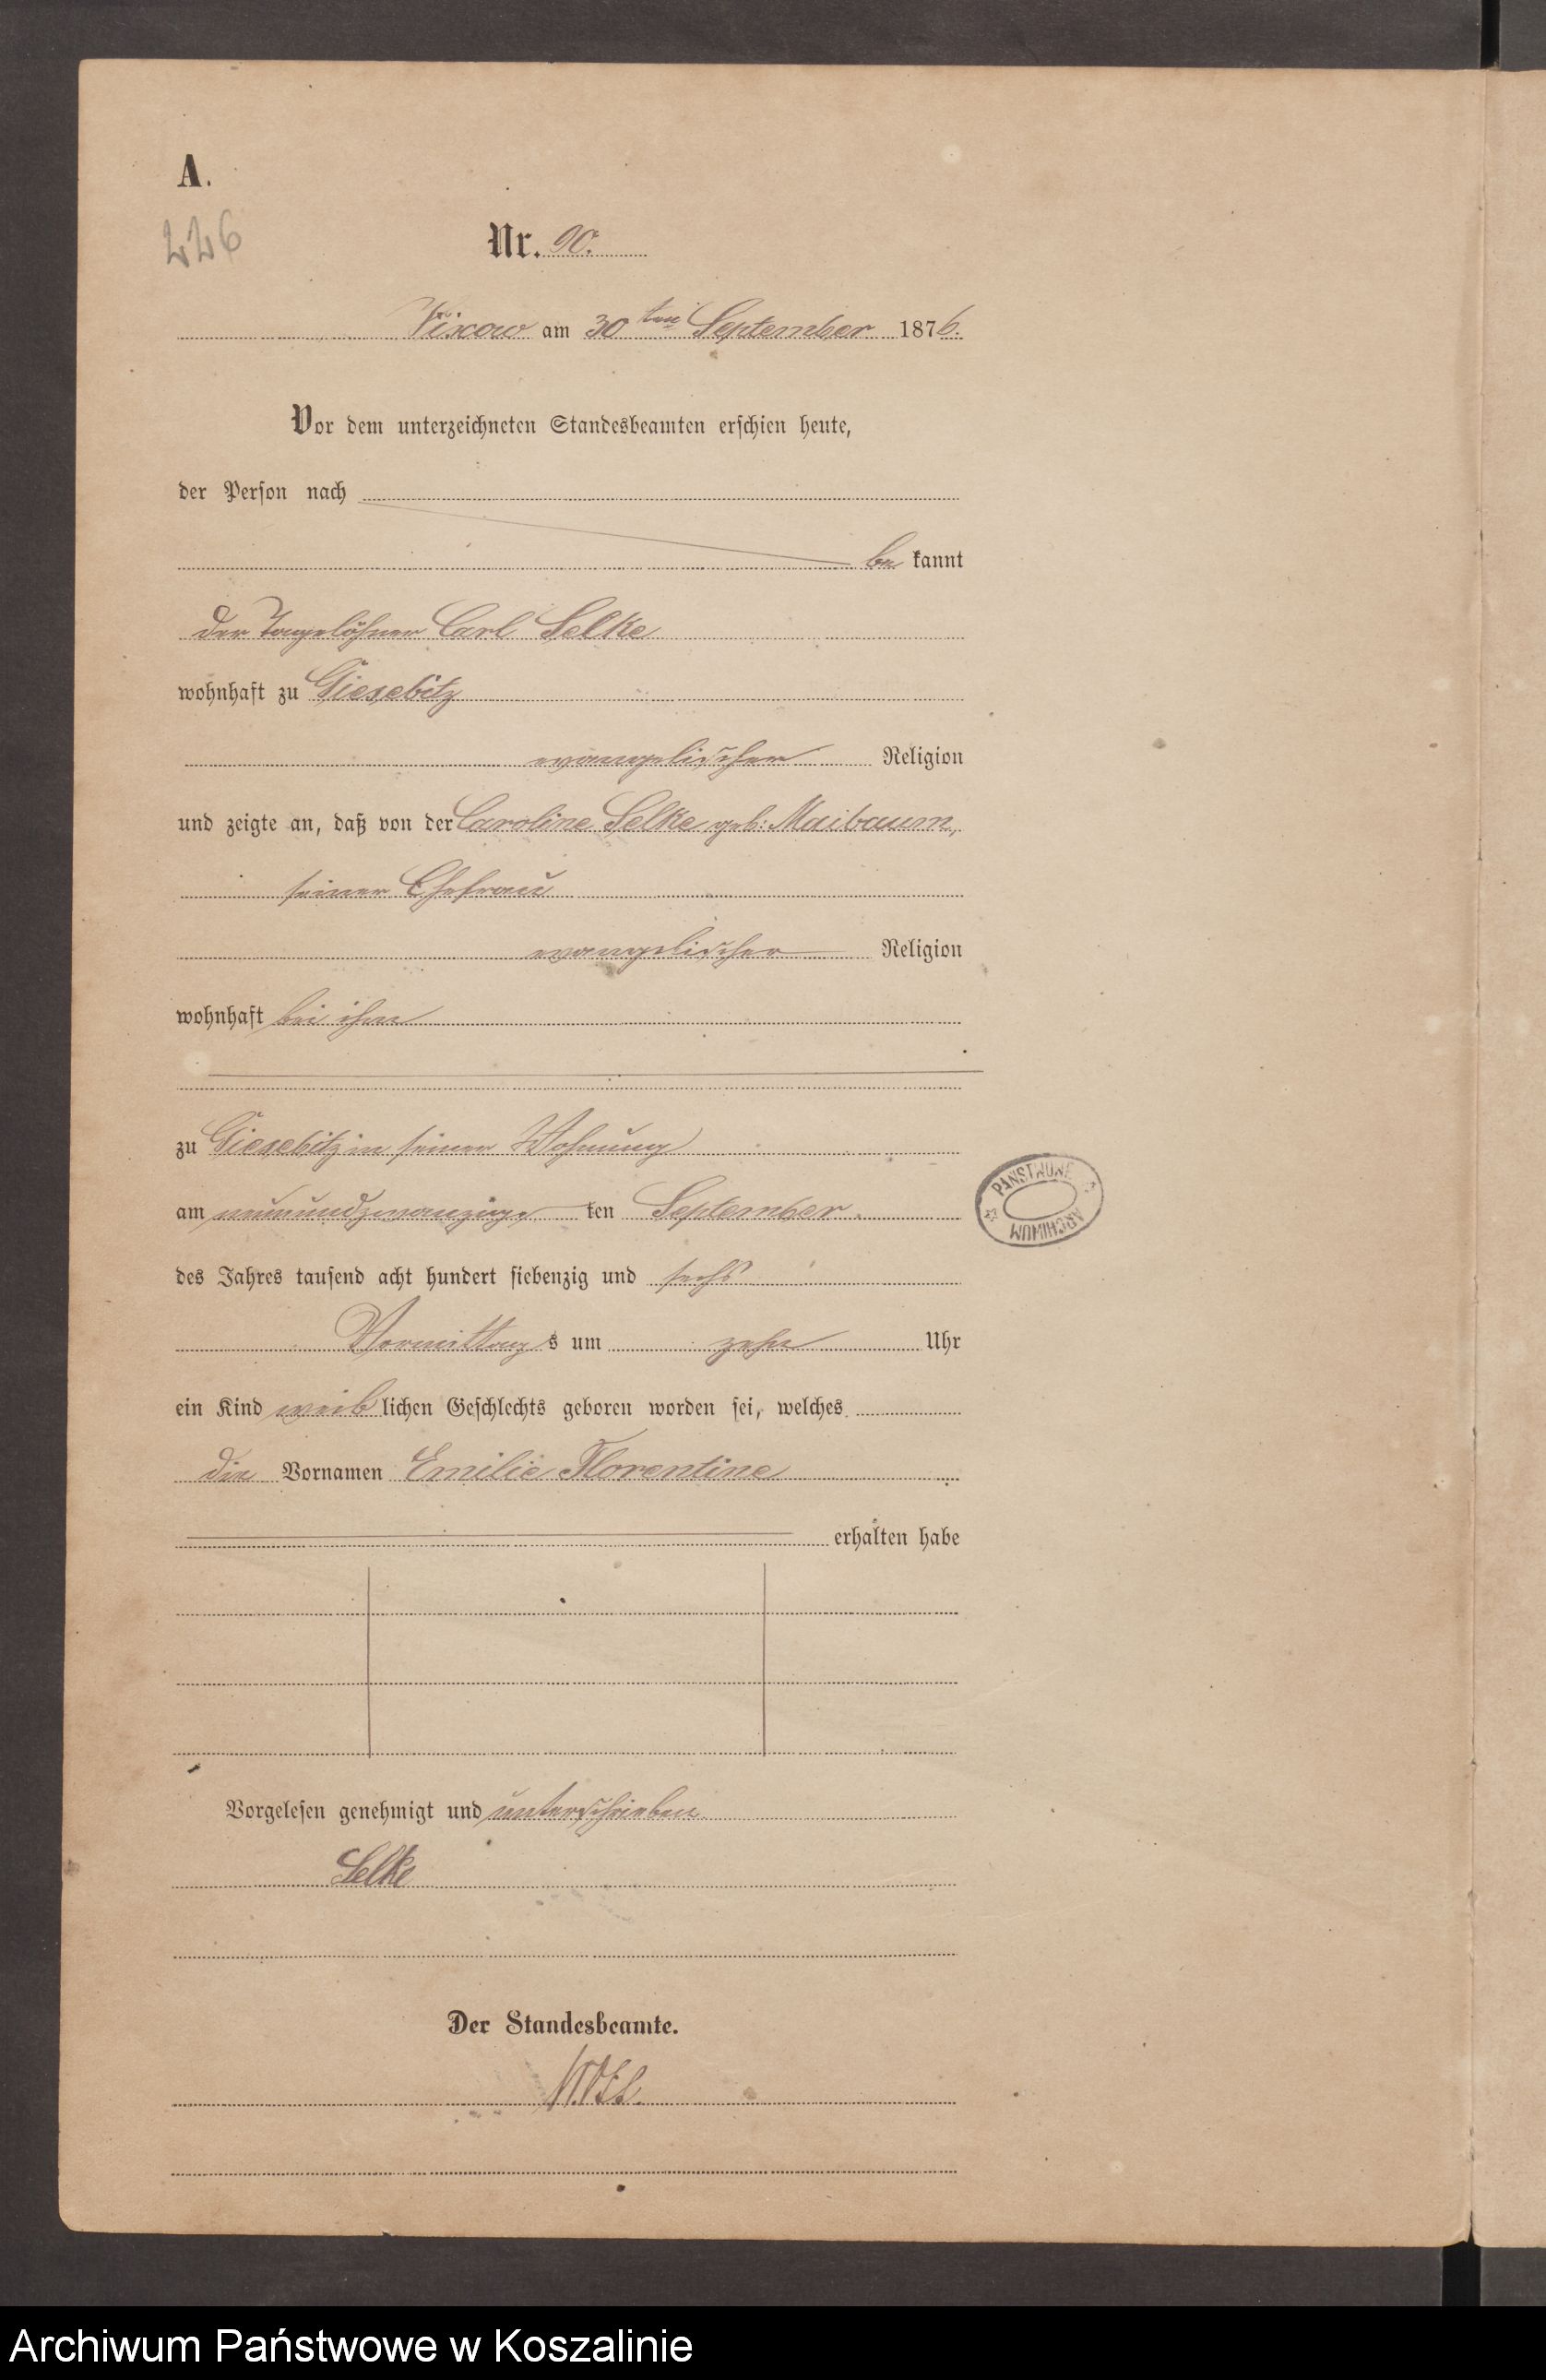 A.
226
Nr. 90.
Vixow am 30ten September 1876.
Vor dem unterzeichneten Standesbeamten erschien heute,
der Person nach
be kannt
der Tagelöhner Carl Selke
wohnhaft zu Giesebitz
evangelischer Religion
und zeigte an, daß von der Caroline Selke geb: Maibaum,
seiner Ehefrau
evangelischer Religion
wohnhaft bei ihm
zu Giesebitz in seiner Wohnung
am neunundzwanzig ten September
des Jahres tausend acht hundert siebenzig und sechs
Vormittag s um zehn Uhr
ein Kind weib lichen Geschlechts geboren worden sei, welches
die Vornamen Emilie Florentine
erhalten habe
Vorgelesen genehmigt und unterschrieben
Selke
Der Standesbeamte.
PAŃSTWOWE
ARCHIWUM
Archiwum Państwowe w Koszalinie